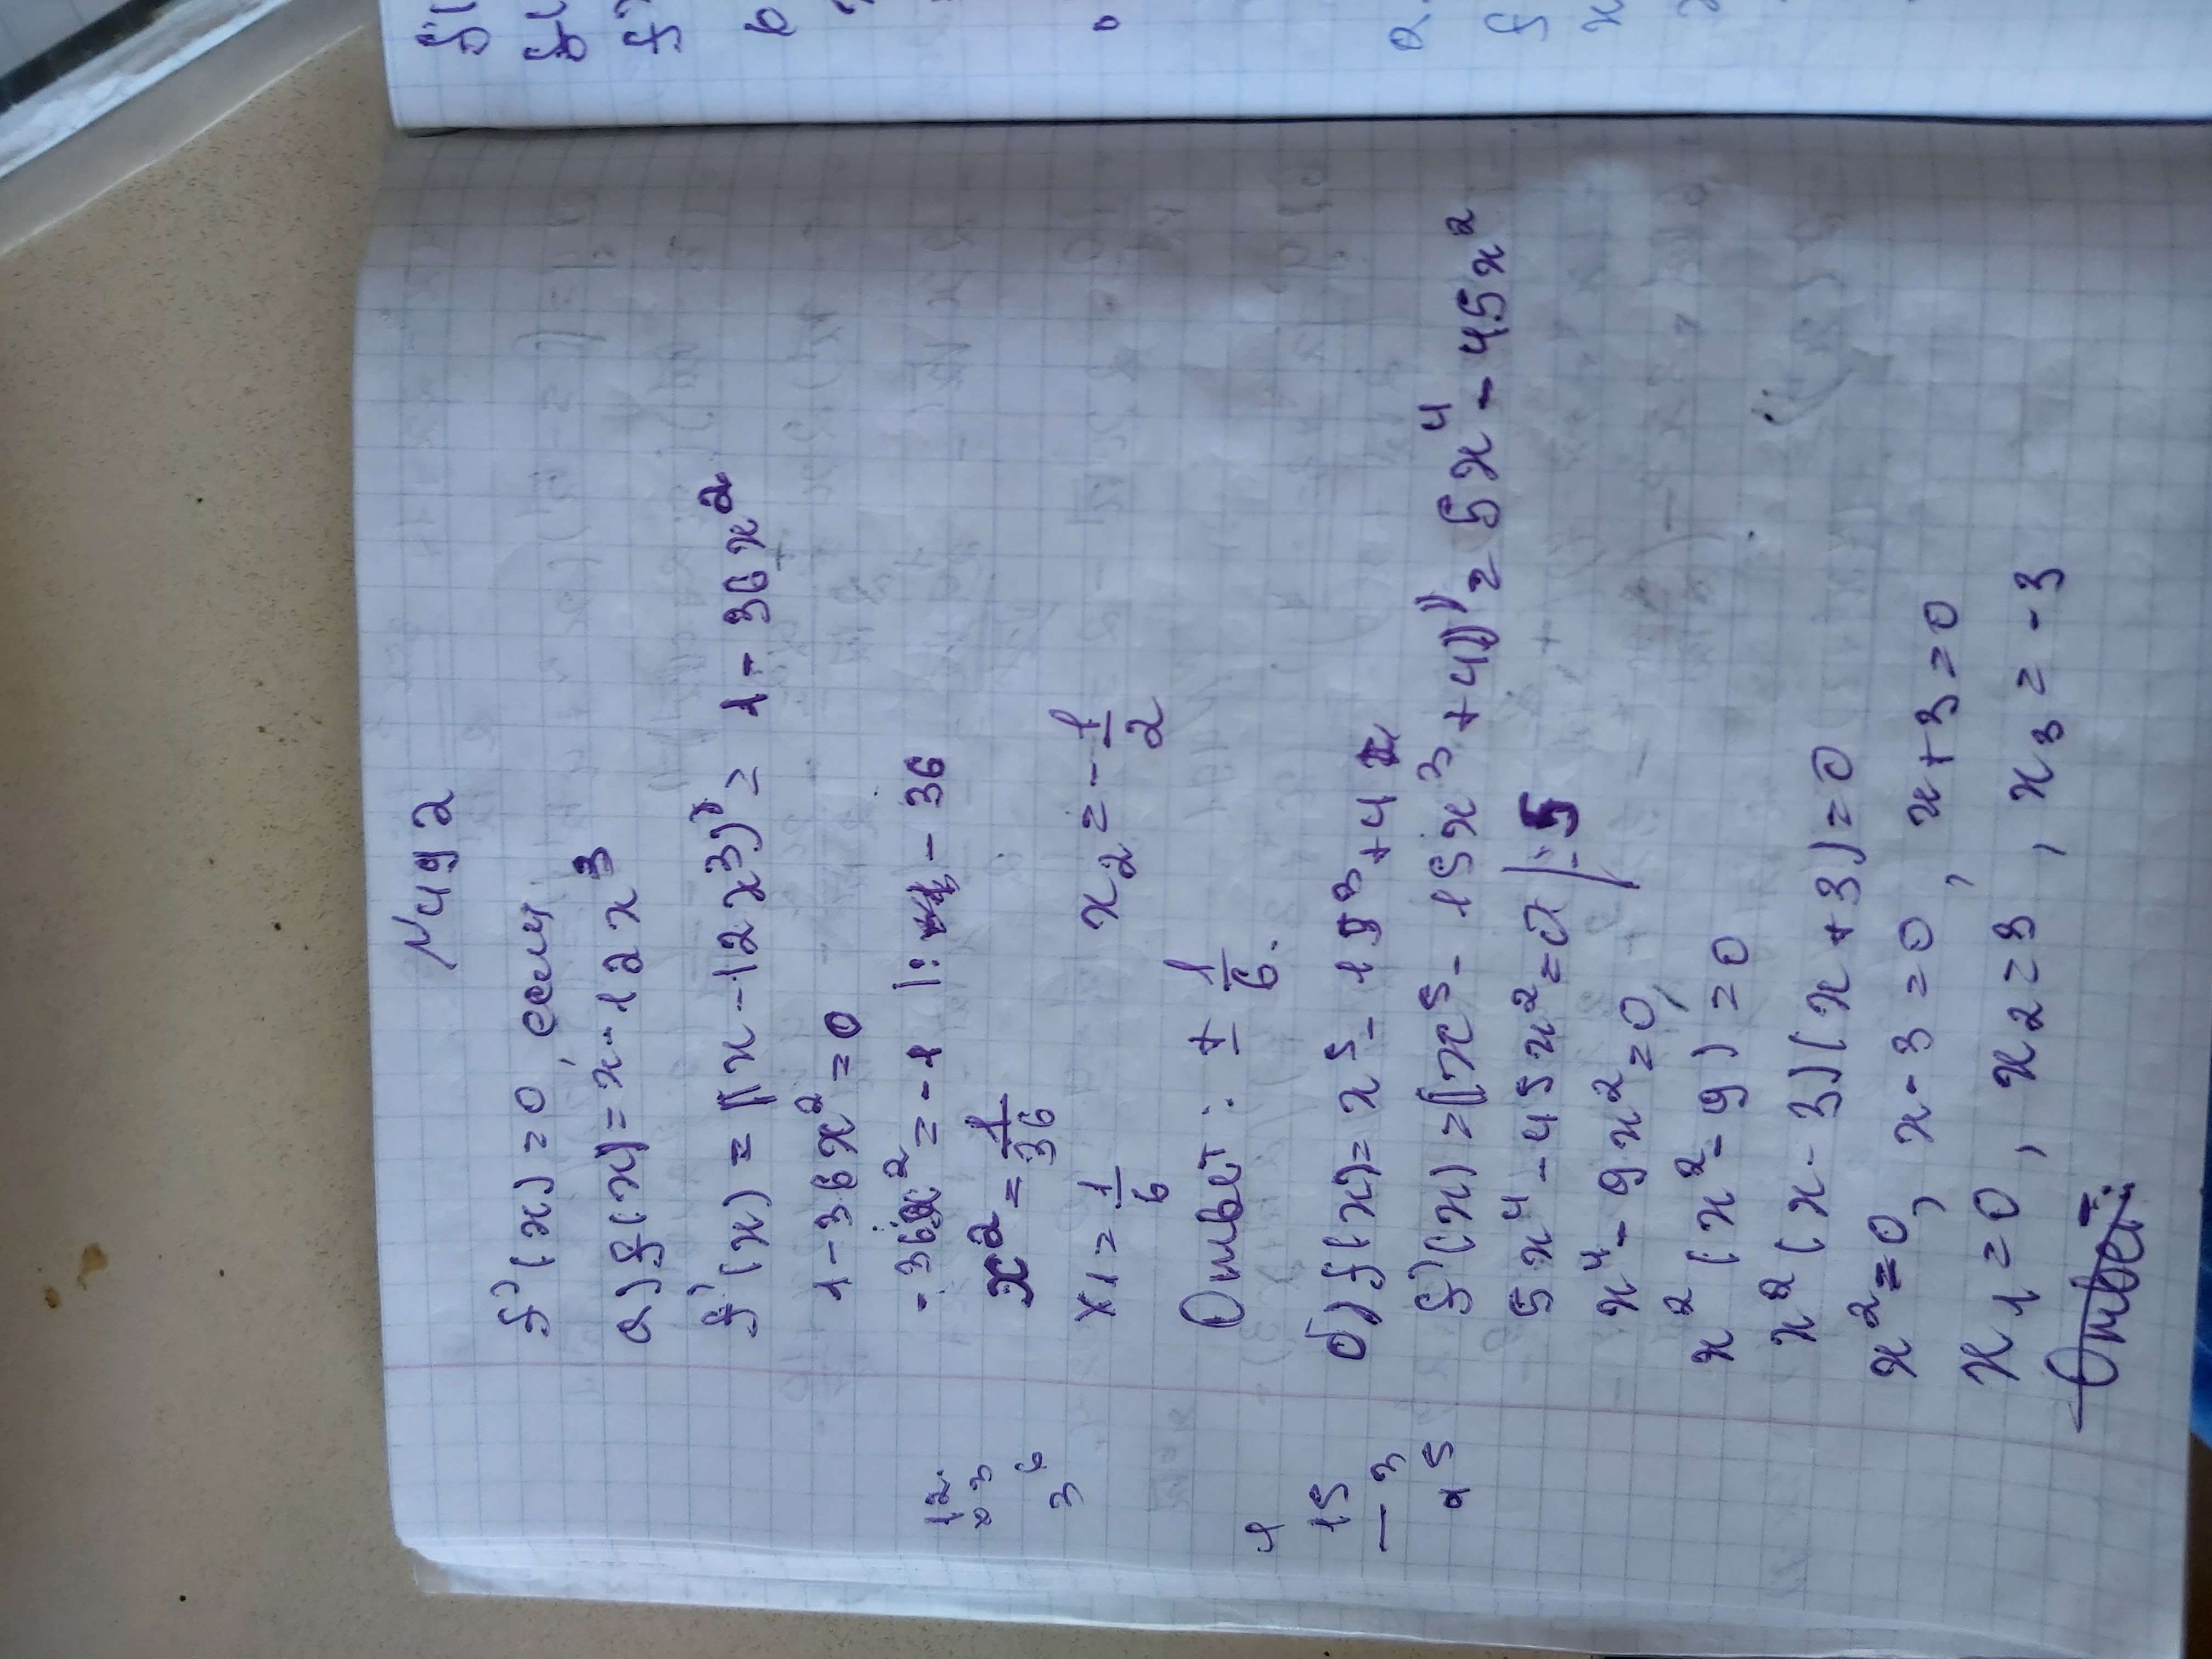 №492
f'(x)=0, если
а) f(x)=x-12x³
f'(x)=(x-12x³)'=1-36x²
1-36x²=0
-36x²=-1 |: -36
x²=1/36
x1=1/6 x2=-1/2
Ответ: ±1/6.
б) f(x)=x⁵-15³+4
f'(x)=(x⁵-15x³+4)'=5x⁴-45x²
5x⁴-45x²=0 |:5
x⁴-9x²=0,
x²(x²-9)=0
x²(x-3)(x+3)=0
x²=0, x-3=0, x+3=0
x1=0, x2=3, x3=-3
Ответ:
12
x3
36
15
3
45